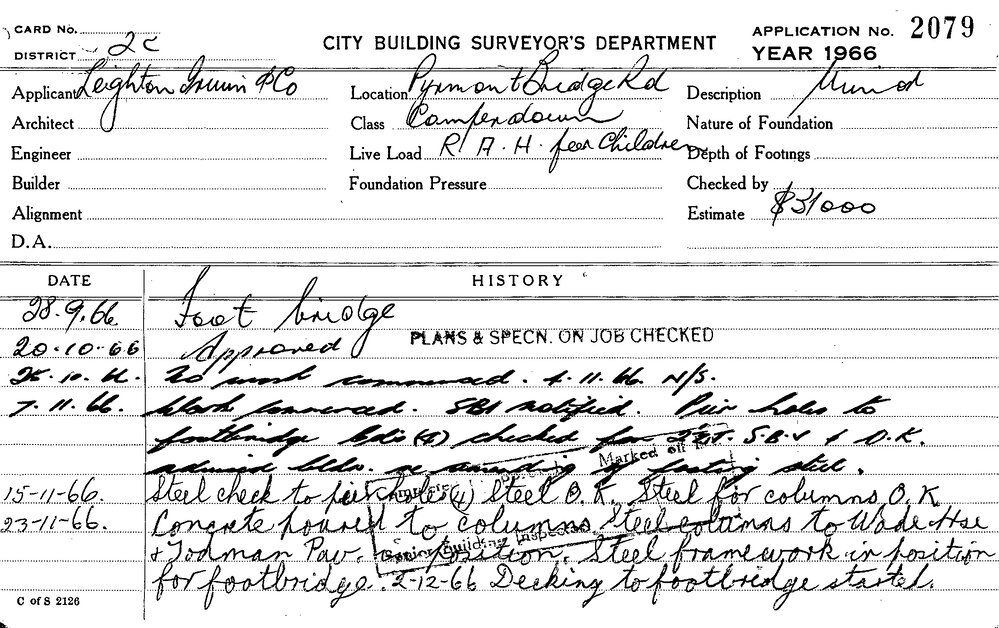 CARD No.
DISTRICT 2C
CITY BUILDING SURVEYOR'S DEPARTMENT
APPLICATION No. 2079
YEAR 1966
Applicant Leighton Irwin & Co
Location Pyrmont Bridge Rd
Description Minor
Architect
Class Camperdown
Nature of Foundation
Engineer
Live Load R.A.H. for Children
Depth of Footings
Builder
Foundation Pressure
Checked by
Alignment
Estimate $31000
D.A.
DATE HISTORY
28.9.66 Foot bridge
20.10.66 Approved PLANS & SPECN. ON JOB CHECKED
25.10.66. No work commenced. 4.11.66 N/S.
7.11.66. Work commenced. SBI notified. Pier holes to
footbridge checked for S.B.I & O.K.
advised bldr. re of footing steel.
Marked off
15-11-66. Steel check to pier holes (4) Steel O.K. Steel for columns O.K
Senior Building Inspector
23-11-66. Concrete poured to columns. Steel columns to Wade Hse
& Todman Pav. in position. Steel framework in position
for footbridge. 2-12-66 Decking to footbridge started.
C of S 2126